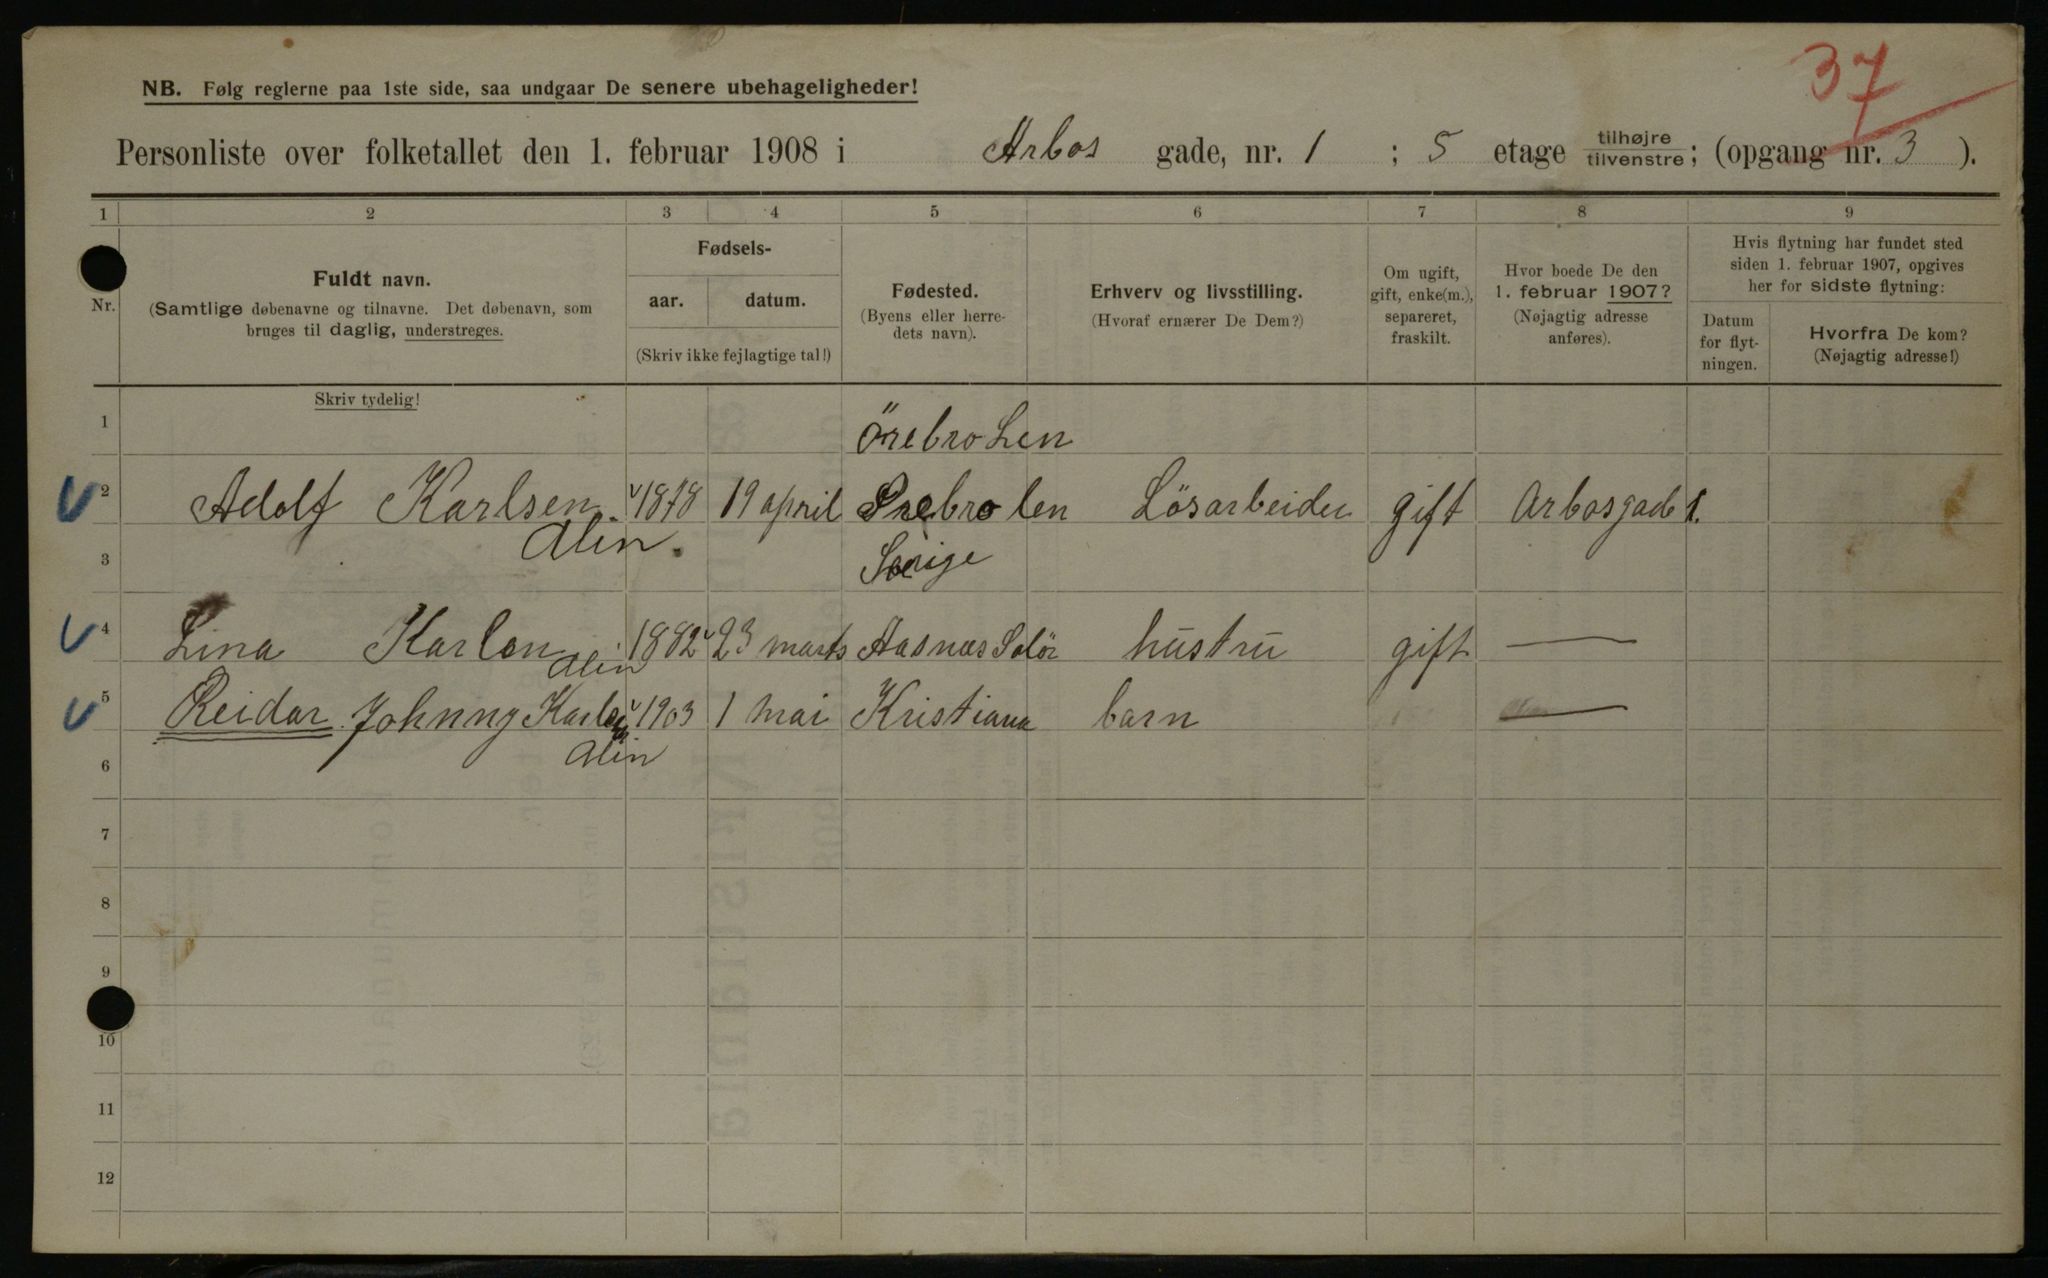 37
NB. Følg reglerne paa 1ste side, saa undgaar De senere ubehageligheder!
Personliste over folketallet den 1. februar 1908 i Arbos gade, nr. 1 ; 5 etage tilhøjre/tilvenstre; (opgang nr. 3 ).
1 2 3 4 5 6 7 8 9
Nr.
Fuldt navn.
(Samtlige døbenavne og tilnavne. Det døbenavn, som
bruges til daglig, understreges.
Skriv tydelig!
Fødsels-
aar. datum.
(Skriv ikke fejlagtige tal!)
Fødested.
(Byens eller herre-
dets navn).
Erhverv og livsstilling.
(Hvoraf ernærer De Dem?)
Om ugift,
gift, enke(m.),
separeret,
fraskilt.
Hvor boede De den
1. februar 1907?
(Nøjagtig adresse
anføres).
Hvis flytning har fundet sted
siden 1. februar 1907, opgives
her for sidste flytning:
Datum
for flyt-
ningen.
Hvorfra De kom?
(Nøjagtig adresse!)
1 Örebro Len
2 Adolf Karlsen 1878 19 april Örebro len Lösarbeider gift Arbosgade 1.
Alin.
3 Sverige
4 Lina Karlsen 1882 23 marts Aasnæs Solör hustru gift —
Alin
5 Reidar Johnny Karlsen 1903 1 mai Kristiana barn —
Alin
6
7
8
9
10
11
12